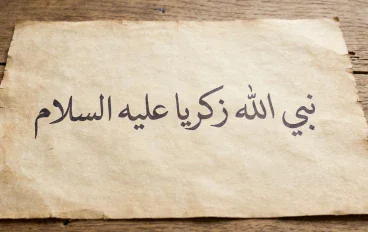 نبي الله زكريا عليه السلام